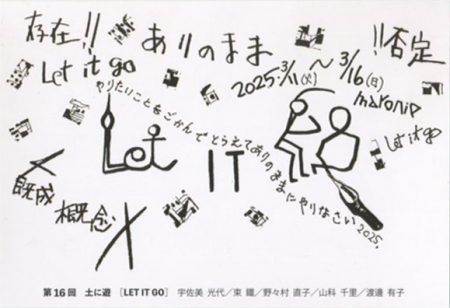 存在!!
ありのまま
!!否定
Let it go
2025.3/11(火)〜3/16(日)
maronie
Let it go
やりたいことをごかんでとらえてありのままにやりなさい2025.
Let IT go
既成
概念
第16回 土に遊 [LET IT GO] 宇佐美 光代／東 鐵／野々村 直子／山科 千里／渡邉 有子